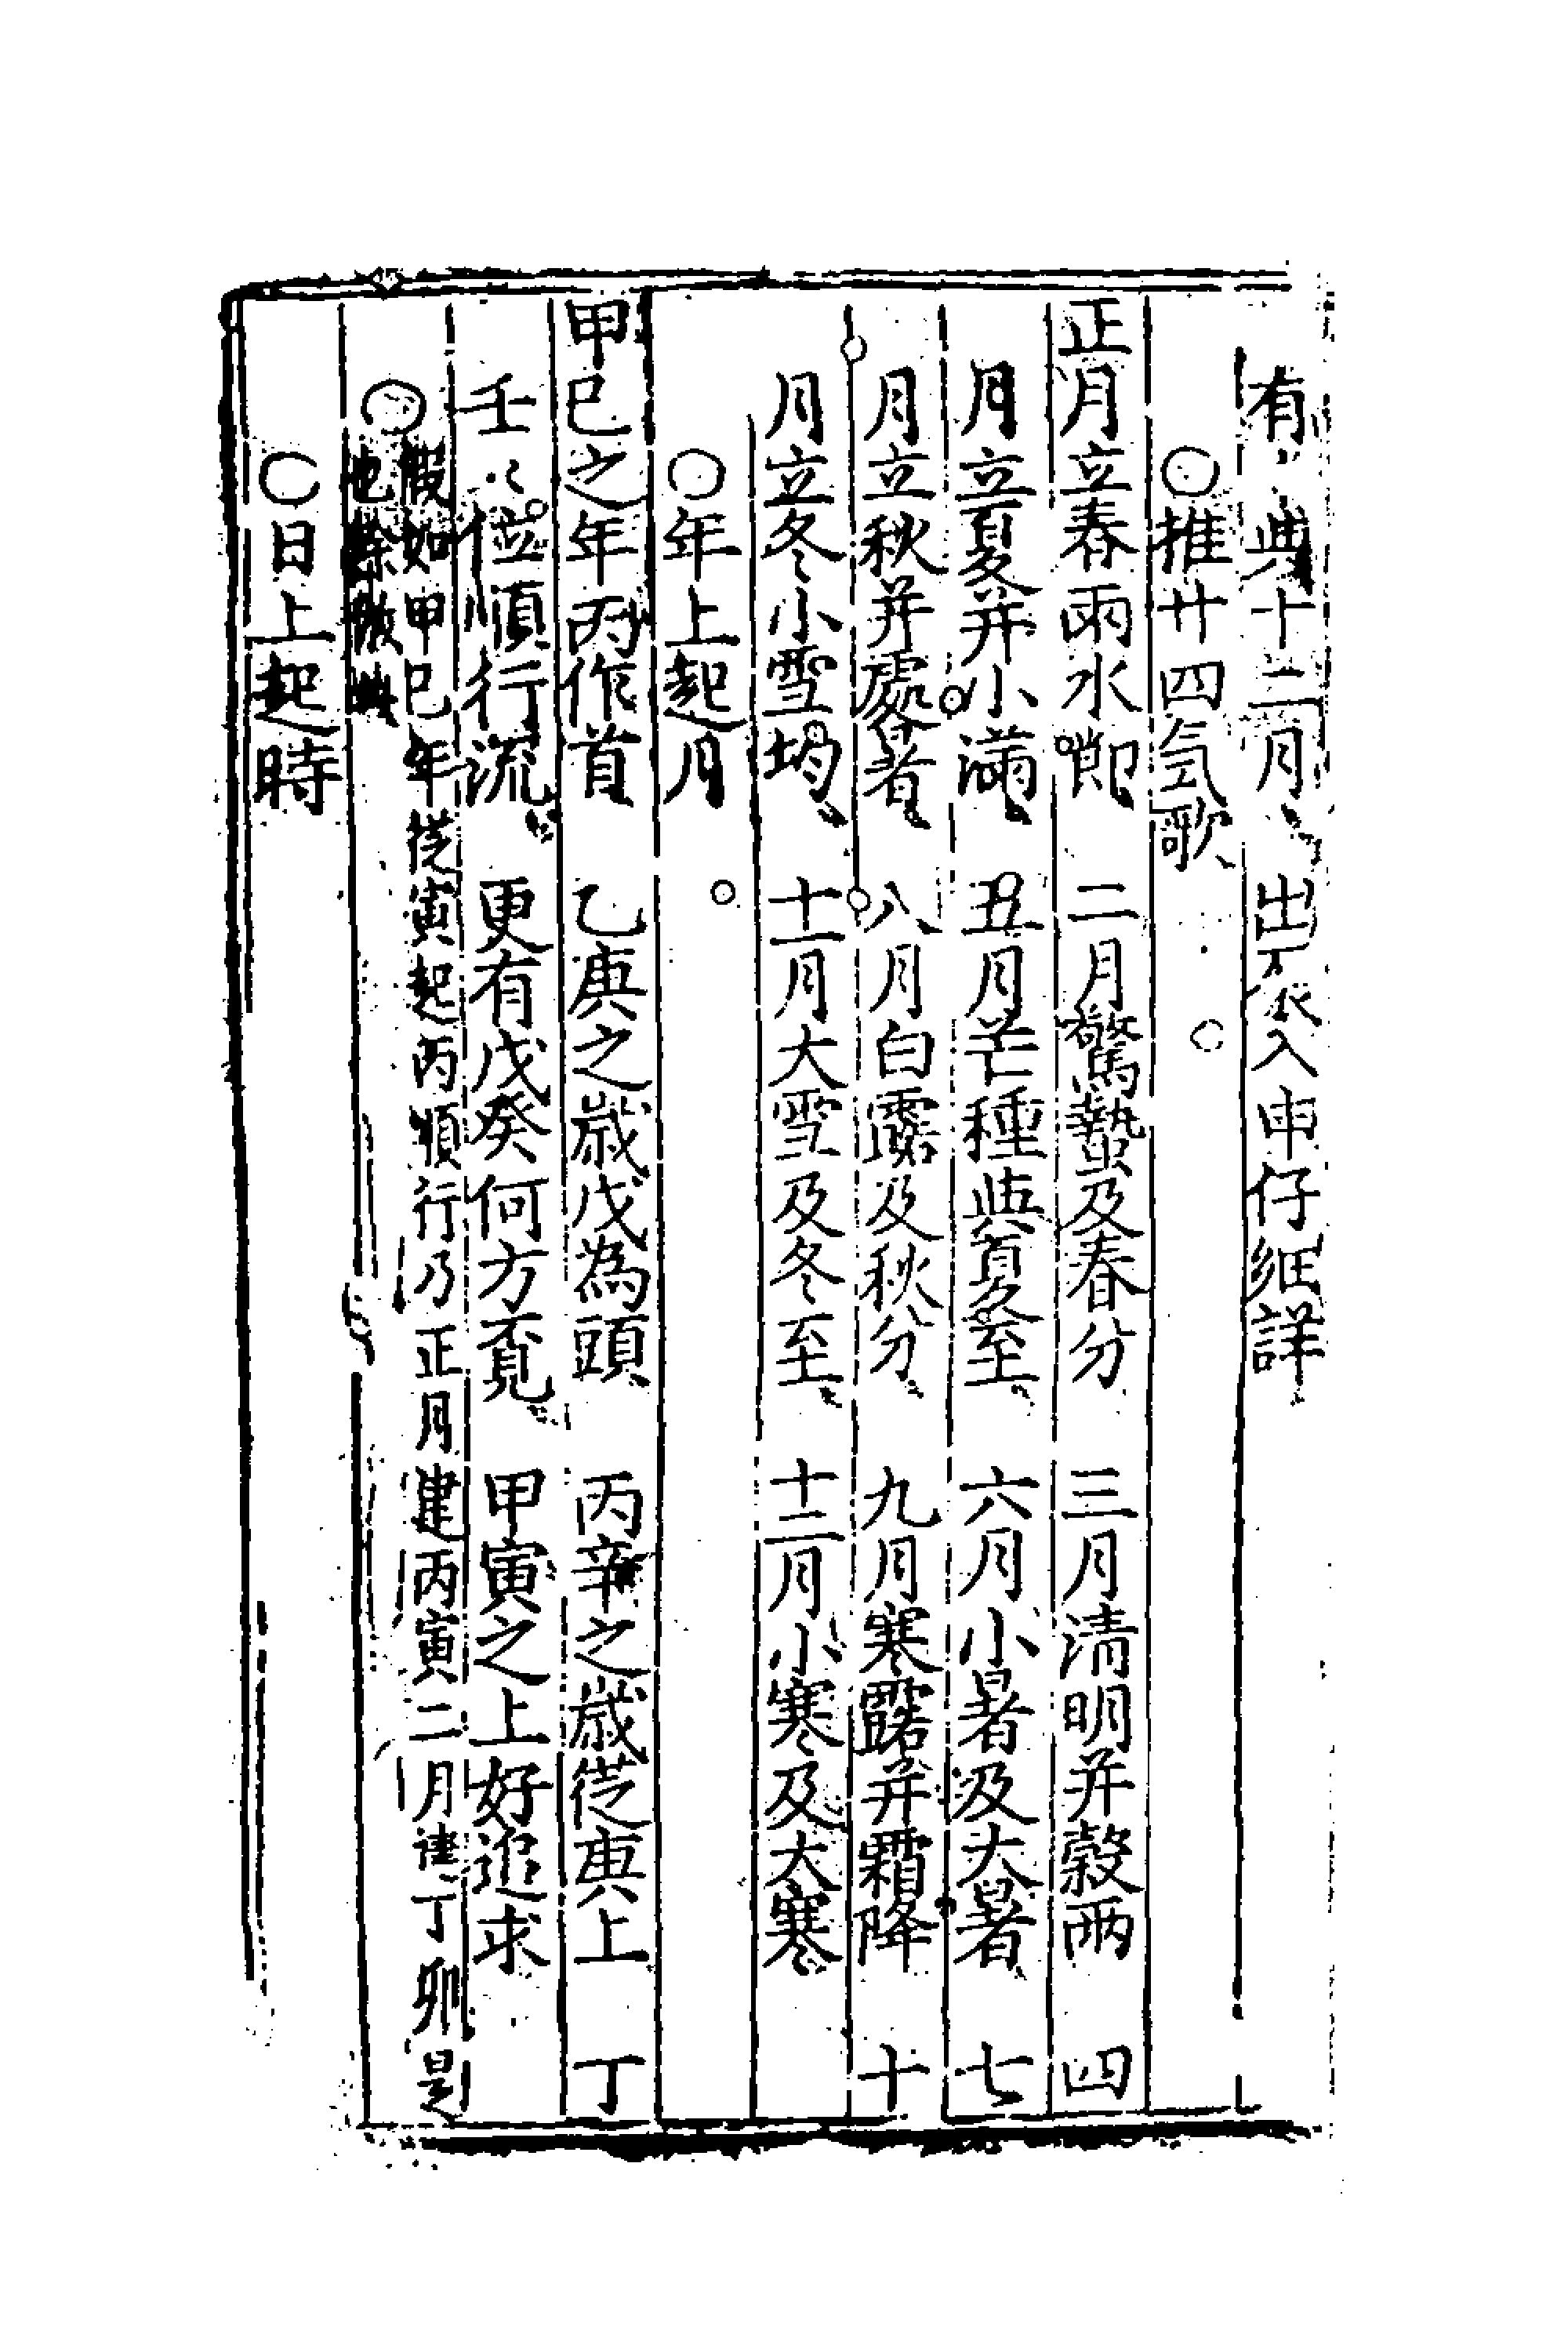 有典十二月出入申仔細詳
〇推廿四氣歌
正月立春雨水節 二月驚蟄及春分 三月清明并穀雨 四
月立夏并小滿 五月芒種與夏至 六月小暑及大暑 七
月立秋并處暑 八月白露及秋分 九月寒露并霜降 十
月立冬小雪均 十一月大雪及冬至 十二月小寒及大寒
〇年上起月
甲己之年丙作首 乙庚之歲戊為頭 丙辛之歲從庚上 丁
壬位順行流 更有戊癸何方覓 甲寅之上好追求
〇假如甲己年從寅起丙順行乃正月建丙寅二月建丁卯是
也餘倣此
〇日上起時